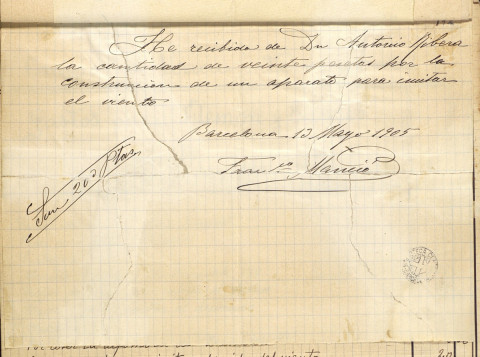 He recibido de Dn Antonio Ribera
la cantidad de veinte pesetas por la
construccion de un aparato para imitar
el viento
Barcelona 13 Mayo 1905
Son 20 Ptas
Fran.co
del viento